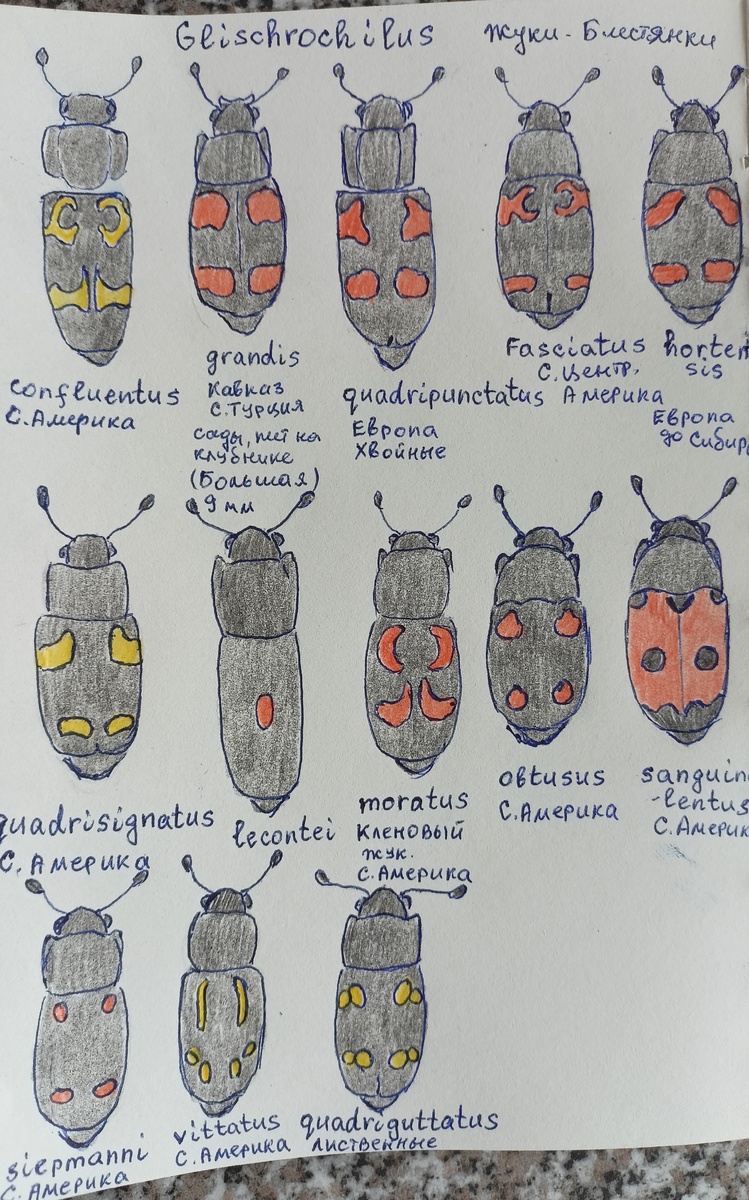 Glischrochilus жуки - Блестянки
confluentus
С. Америка
grandis
Кавказ
С. Турция
сады,
клубнике
(Большая)
9 мм
quadripunctatus
Европа
Хвойные
Fasciatus
С. Центр.
Америка
horten
sis
Европа
до Сибир
quadrisignatus
С. Америка
lecontei
moratus
Кленовый
жук.
С. Америка
obtusus
С. Америка
sanguin
-lentus
С. Америк
siepmanni
С. Америка
vittatus
С. Америка
quadriguttatus
лиственные